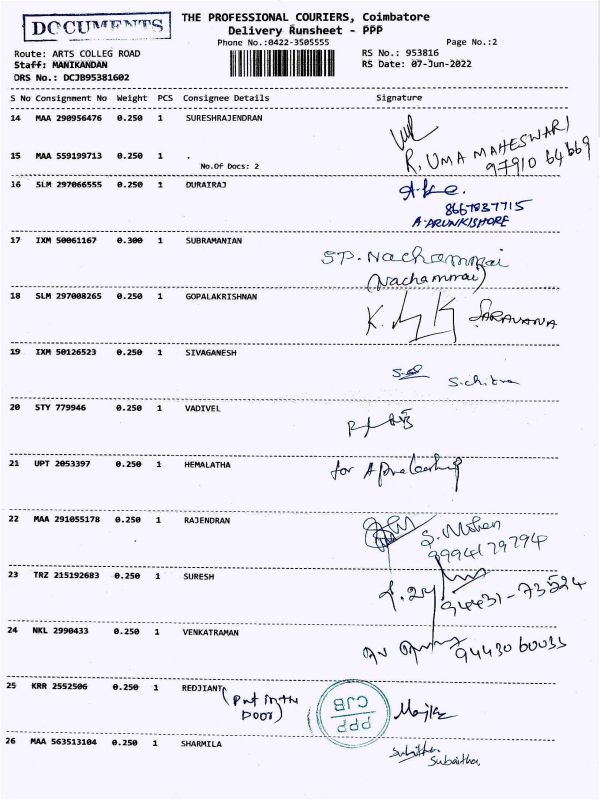 DOCUMENTS
THE PROFESSIONAL COURIERS, Coimbatore
Delivery Runsheet - PPP
Phone No.:0422-3505555
Page No.:2
Route: ARTS COLLEG ROAD
RS No.: 953816
Staff: MANIKANDAN
RS Date: 07-Jun-2022
DRS No.: DCJB95381602
S No Consignment No Weight PCS Consignee Details Signature
14 MAA 290956476 0.250 1 SURESHRAJENDRAN
R. UMA MAHESWARI
15 MAA 559199713 0.250 1 .
97910 64669
No.Of Docs: 2
16 SLM 297066555 0.250 1 DURAIRAJ
8667937715
A. ARUNKISHORE
17 IXM 50061167 0.300 1 SUBRAMANIAN
SP. Nachammai
(Nachammai)
18 SLM 297008265 0.250 1 GOPALAKRISHNAN
SARAVANA
19 IXM 50126523 0.250 1 SIVAGANESH
S. chitra
20 STY 779946 0.250 1 VADIVEL
21 UPT 2053397 0.250 1 HEMALATHA
for
22 MAA 291055178 0.250 1 RAJENDRAN
S. Mohan
9994179794
23 TRZ 215192683 0.250 1 SURESH
94431-73524
24 NKL 2990433 0.250 1 VENKATRAMAN
9443060033
25 KRR 2552506 0.250 1 REDJIANT
(Put in the
Door)
PPP
CJB
26 MAA 563513104 0.250 1 SHARMILA
Subaitha